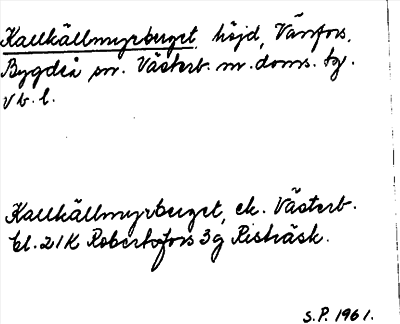 Kallkällmyrberget, höjd, Vänfors,
Bygdeå sn. Västerb. n. doms. tg.
Vb. l.
Kallkällmyrberget, ek. Västerb.
bl. 21K Robertsfors 3g Risträsk.
S.P. 1961.